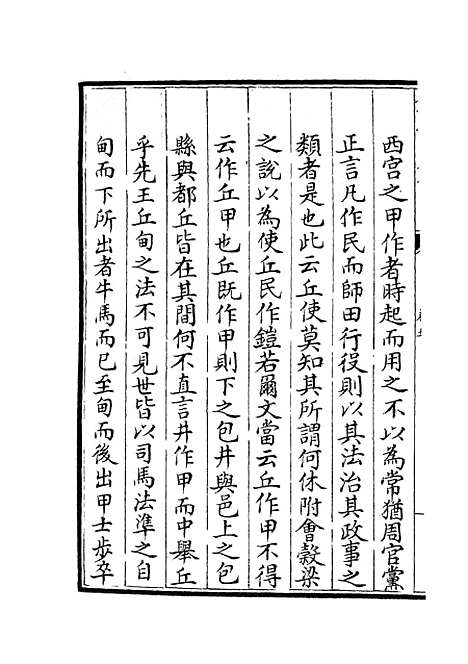 西宫之甲作者時起而用之不以為常猶周官黨
正言凡作民而師田行役則以其法治其政事之
類者是也此云丘使莫知其所謂何休附會穀梁
之說以為使丘民作鎧若爾文當云丘作甲不得
云作丘甲也丘既作甲則下之包井與邑上之包
縣與都丘皆在其間何不直言井作甲而中舉丘
乎先王丘甸之法不可見世皆以司馬法準之自
甸而下所出者牛馬而已至甸而後出甲士歩卒